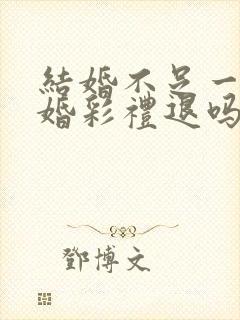 結婚不足一
婚彩禮退吗
鄧博文